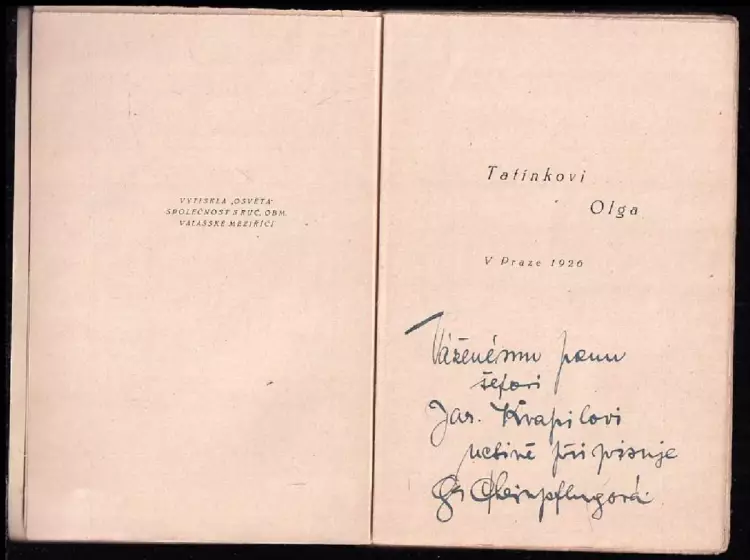 VYTISKLA „OSVĚTA“
SPOLEČNOST S RUČ. OBM.
VALAŠSKÉ MEZIŘÍČÍ
Tatínkovi
Olga
V Praze 1926
Váženému panu
šéfovi
Jar. Kvapilovi
uctivě připisuje
Scheinpflugová